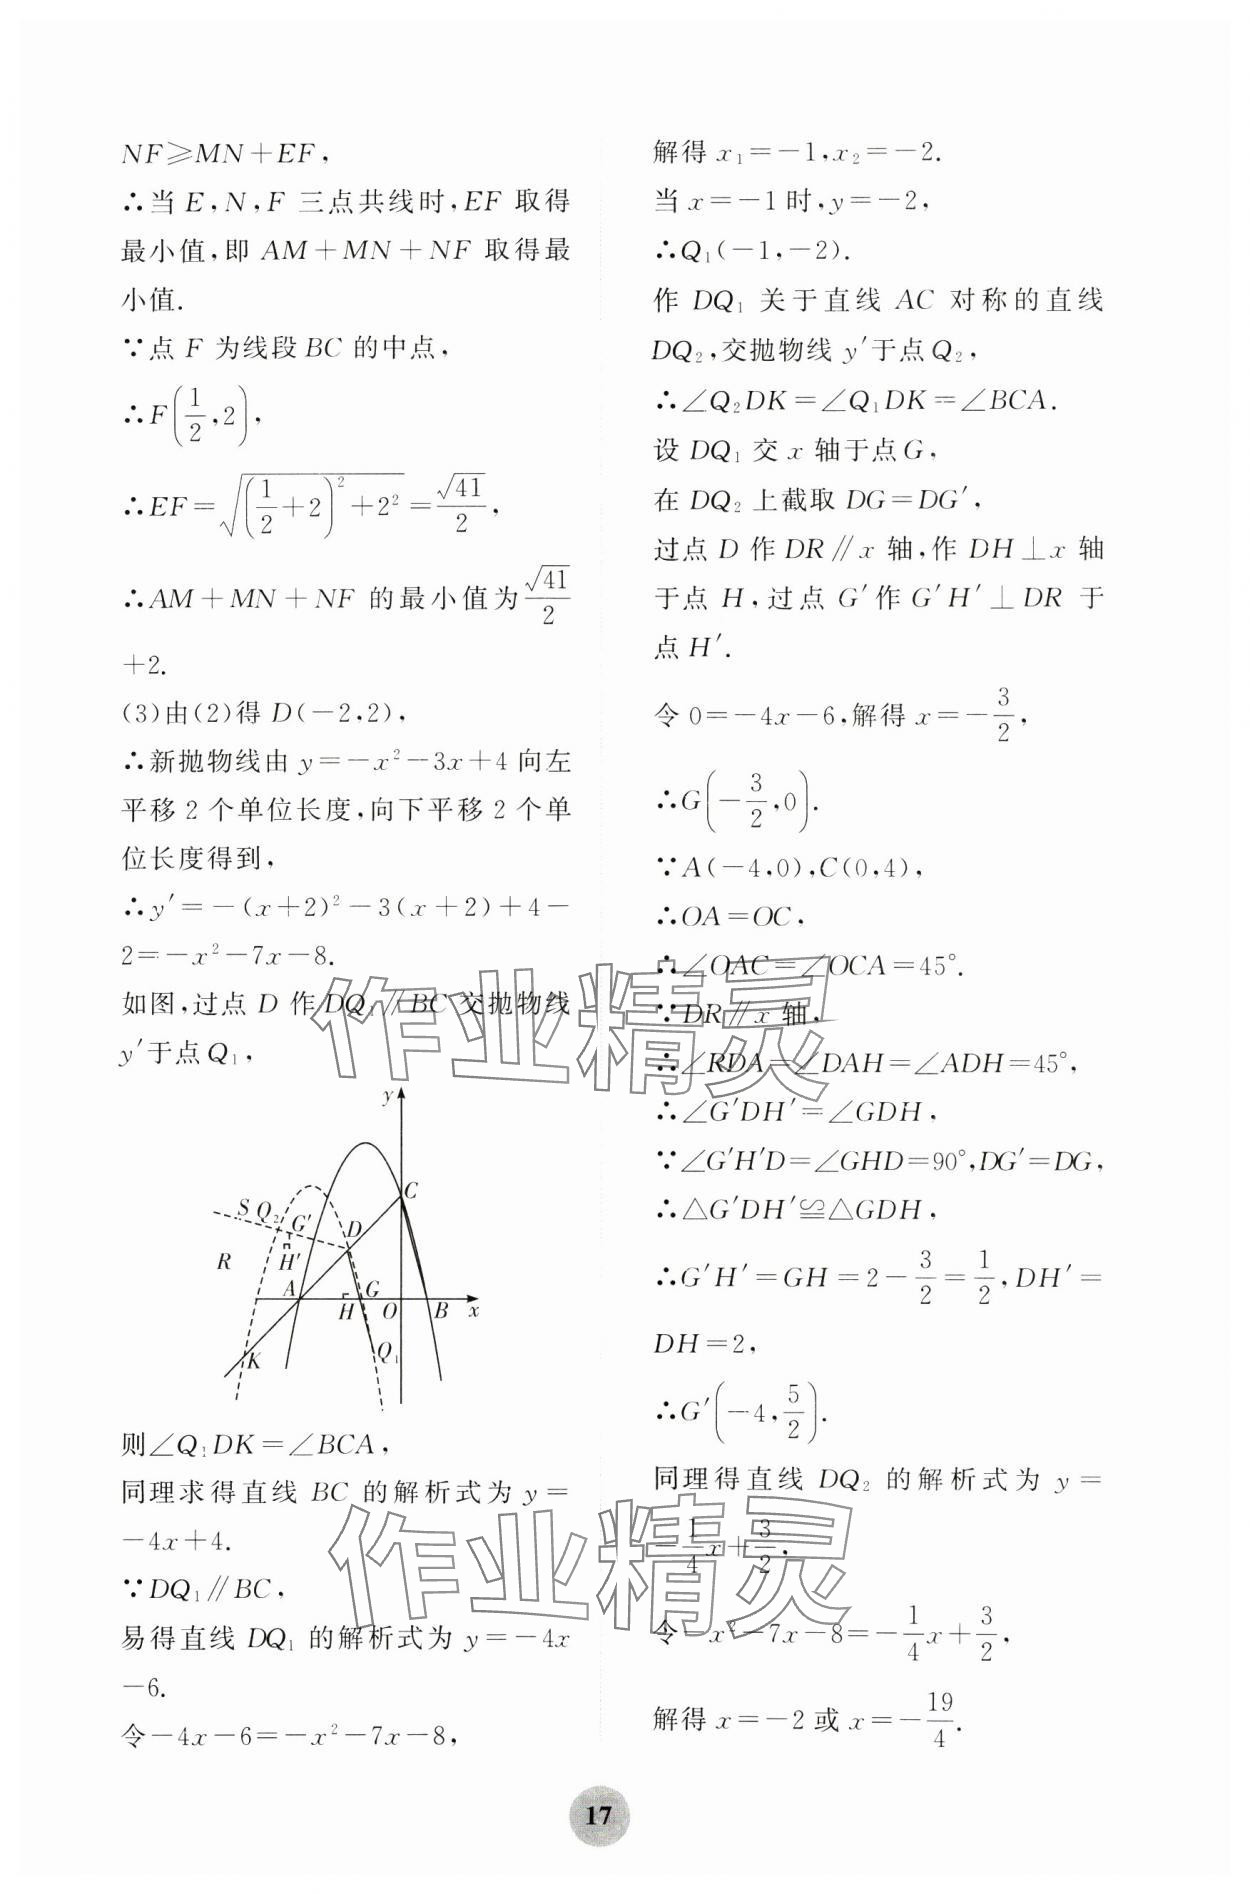 NF⩾MN+EF，
∴当 E，N，F 三点共线时，EF 取得
最小值，即 AM+MN+NF 取得最
小值.
∵点 F 为线段 BC 的中点，
∴F(1/2，2)，
∴EF=√((1/2+2)²+2²)=√41/2，
∴AM+MN+NF 的最小值为√41/2
+2.
(3)由(2)得 D(−2，2)，
∴新抛物线由 y=−x²−3x+4 向左
平移 2 个单位长度，向下平移 2 个单
位长度得到，
∴y′=−(x+2)²−3(x+2)+4−
2=−x²−7x−8.
如图，过点 D 作 DQ₁∥BC 交抛物线
y′于点 Q₁，
y
C
S Q₂ G′ D
R H′
A H G O B x
K Q₁
则∠Q₁DK=∠BCA，
同理求得直线 BC 的解析式为 y=
−4x+4.
∵DQ₁∥BC，
易得直线 DQ₁ 的解析式为 y=−4x
−6.
令−4x−6=−x²−7x−8，
解得 x₁=−1，x₂=−2.
当 x=−1 时，y=−2，
∴Q₁(−1，−2).
作 DQ₁ 关于直线 AC 对称的直线
DQ₂，交抛物线 y′于点 Q₂，
∴∠Q₂DK=∠Q₁DK=∠BCA.
设 DQ₁ 交 x 轴于点 G，
在 DQ₂ 上截取 DG=DG′，
过点 D 作 DR∥x 轴，作 DH⊥x 轴
于点 H，过点 G′作 G′H′⊥DR 于
点 H′.
令 0=−4x−6，解得 x=−3/2，
∴G(−3/2，0).
∵A(−4，0)，C(0，4)，
∴OA=OC，
∴∠OAC=∠OCA=45°.
∵DR∥x 轴，
∴∠RDA=∠DAH=∠ADH=45°，
∴∠G′DH′=∠GDH，
∵∠G′H′D=∠GHD=90°，DG′=DG，
∴△G′DH′≌△GDH，
∴G′H′=GH=2−3/2=1/2，DH′=
DH=2，
∴G′(−4，5/2).
同理得直线 DQ₂ 的解析式为 y=
−1/4x+3/2，
令−x²−7x−8=−1/4x+3/2，
解得 x=−2 或 x=−19/4.
作业精灵
作业精灵
17